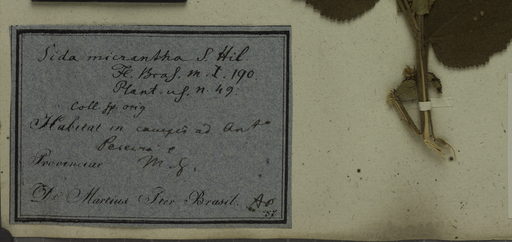 Sida micrantha S. Hil
Fl. Bras. m. I. 190.
Plant. us. n. 49.
Coll. sp. orig
Habitat in campis ad Anto
Pereira e
Provinciae M. G.
Dr. Martius Iter Brasil.